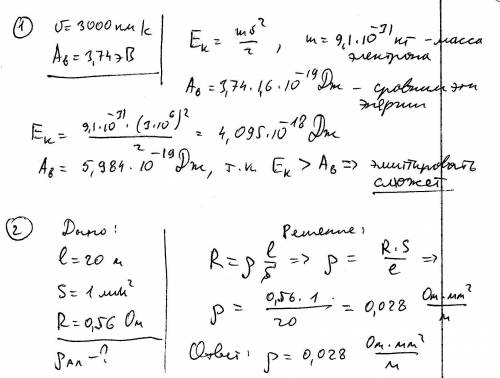 ① υ = 3000 км/с
Aв = 3,74 эВ
Eк = mυ²/2, m = 9,1·10⁻³¹ кг - масса
электрона
Aв = 3,74·1,6·10⁻¹⁹ Дж - сравним эти
энергии
Eк = 9,1·10⁻³¹·(3·10⁶)²/2 = 4,095·10⁻¹⁸ Дж
Aв = 5,984·10⁻¹⁹ Дж, т.к. Eк > Aв => эмитировать
сможет
② Дано:
l = 20 м
S = 1 мм²
R = 0,56 Ом
ρАл - ?
Решение:
R = ρ l/S => ρ = R·S/l =>
ρ = 0,56·1/20 = 0,028 Ом·мм²/м
Ответ: ρ = 0,028 Ом·мм²/м